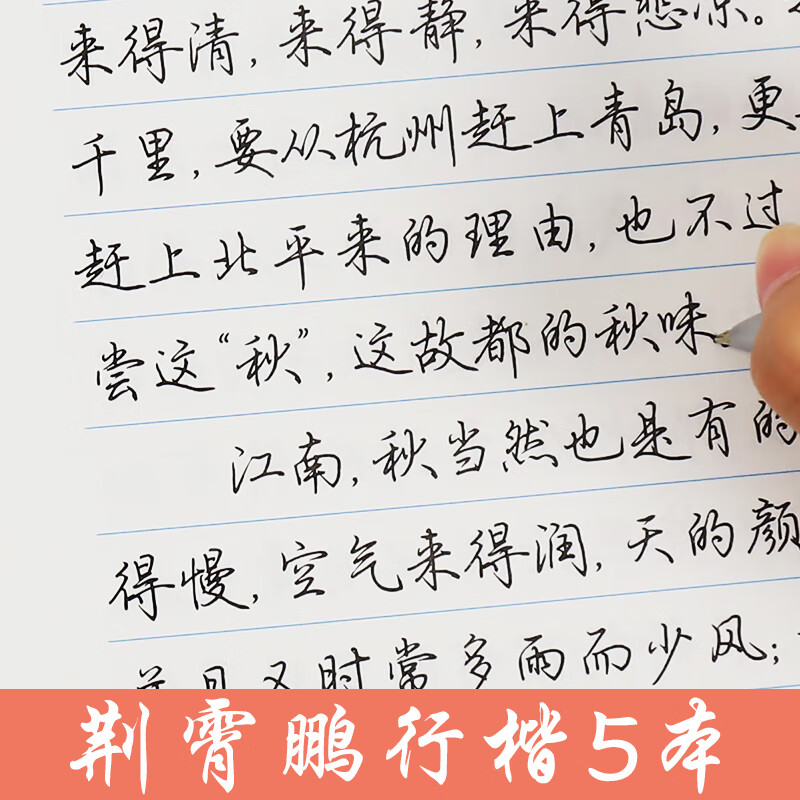 来得清，来得静，来得悲凉。
千里，要从杭州赶上青岛，更
赶上北平来的理由，也不过
尝这“秋”，这故都的秋味
江南，秋当然也是有的
得慢，空气来得润，天的颜
并且又时常多雨而少风；
荆霄鹏行楷5本